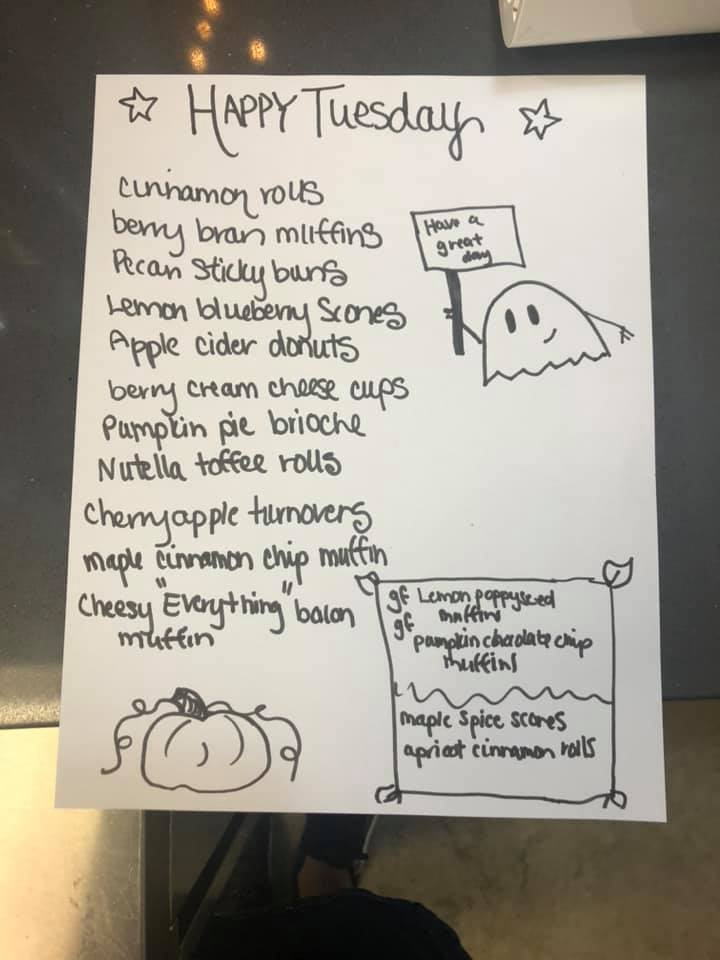 HAPPY Tuesday
cinnamon rolls
berry bran muffins
Pecan Sticky buns
Lemon blueberry Scones
Apple cider donuts
berry cream cheese cups
Pumpkin pie brioche
Nutella toffee rolls
Cherry apple turnovers
maple cinnamon chip muffin
Cheesy "Everything" bacon
muffin
Have a
great
day
gf Lemon poppyseed
muffins
gf
pumpkin chocolate chip
muffins
maple spice scones
apricot cinnamon rolls